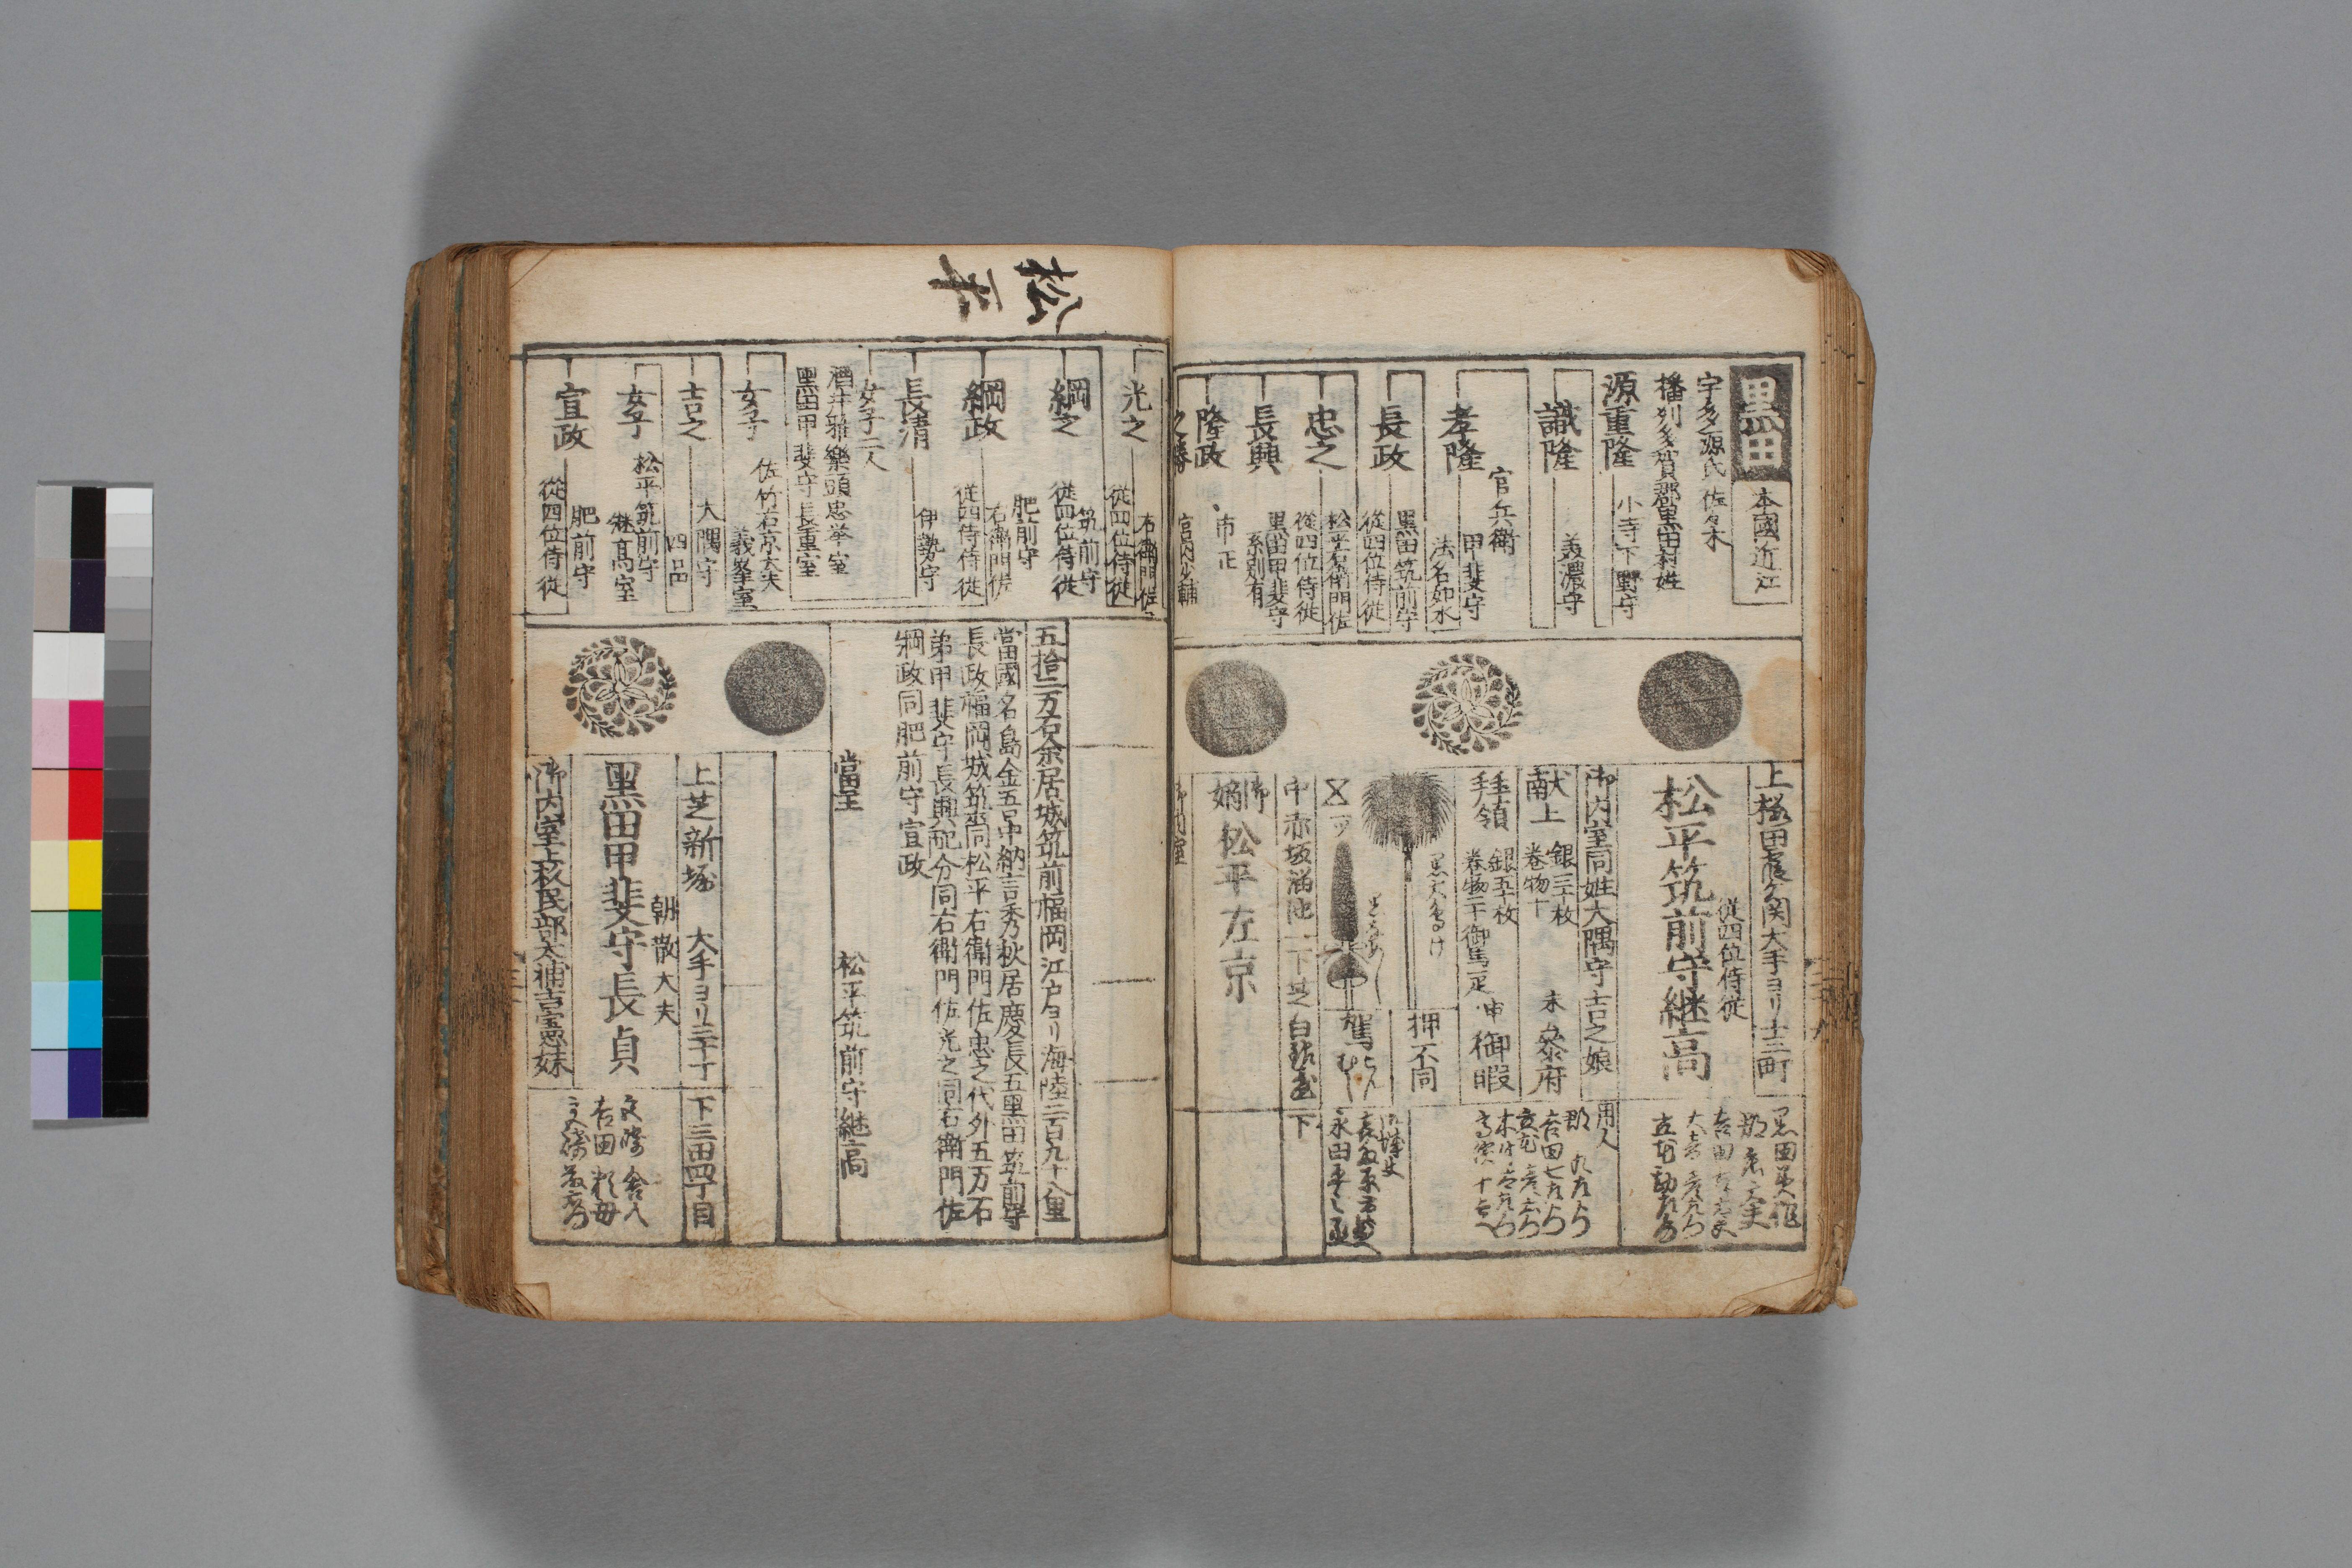 黒田
本國近江
宇多源氏 佐々木
播州多賀郡黒田村姓
源重隆
小寺下野守
識隆
美濃守
孝隆
官兵衛
甲斐守
法名如水
長政
黒田筑前守
從四位侍從
忠之
松平右衛門佐
從四位侍從
長興
黒田甲斐守
系別有
隆政
市正
之勝
宮内少輔
上桜田霞ヶ関大手ヨリ十三町
從四位侍從
松平筑前守継高
御内室同姓大隅守吉之娘
献上
銀三十枚
巻物十
未 參府
拝領
銀五十枚
巻物二十御馬一疋
申 御暇
押不同
駕
中赤坂溜池
下芝白銀臺
下
御嫡
松平左京
御内室
用人
松平
光之
右衛門佐
從四位侍從
綱之
筑前守
從四位侍從
綱政
肥前守
右衛門佐
從四侍侍從
長清
伊勢守
女子二人
酒井雅樂頭忠挙室
黒田甲斐守長重室
女子
佐竹右京大夫
義峯室
吉之
大隅守
四品
女子
松平筑前守
継高室
宣政
肥前守
從四位侍從
五拾二万石余居城筑前福岡江戸ヨリ海陸二百九十八里
當國名島金吾中納言秀秋居慶長五黒田筑前守
長政福岡城筑 同松平右衛門佐忠之代外五万石
弟甲斐守長興配分同右衛門佐光之同右衛門佐
綱政同肥前守宣政
當主
松平筑前守継高
上芝新堀
大手ヨリ三十丁
下三田四丁目
朝散大夫
黒田甲斐守長貞
御内室上杉民部太輔吉憲妹